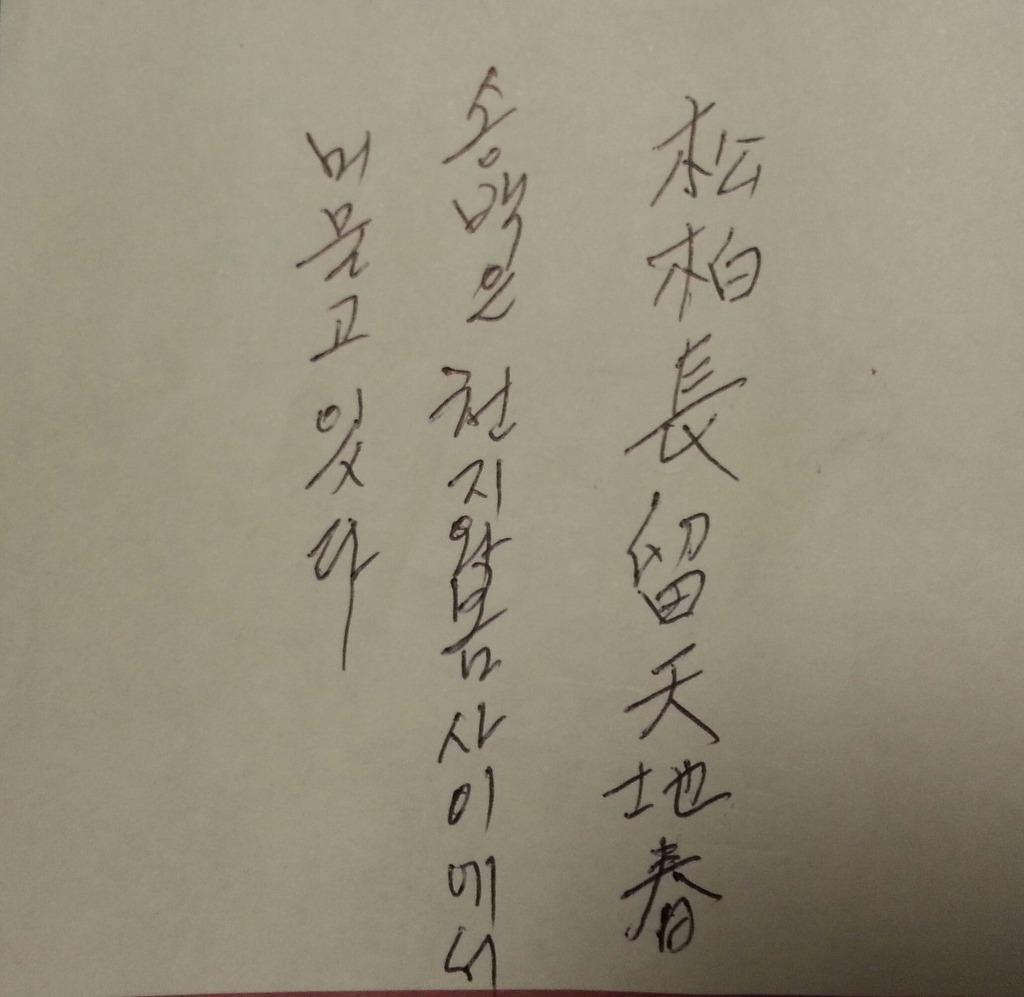 松柏長留天地春
송백은 천지와봄사이에서
머물고 있다